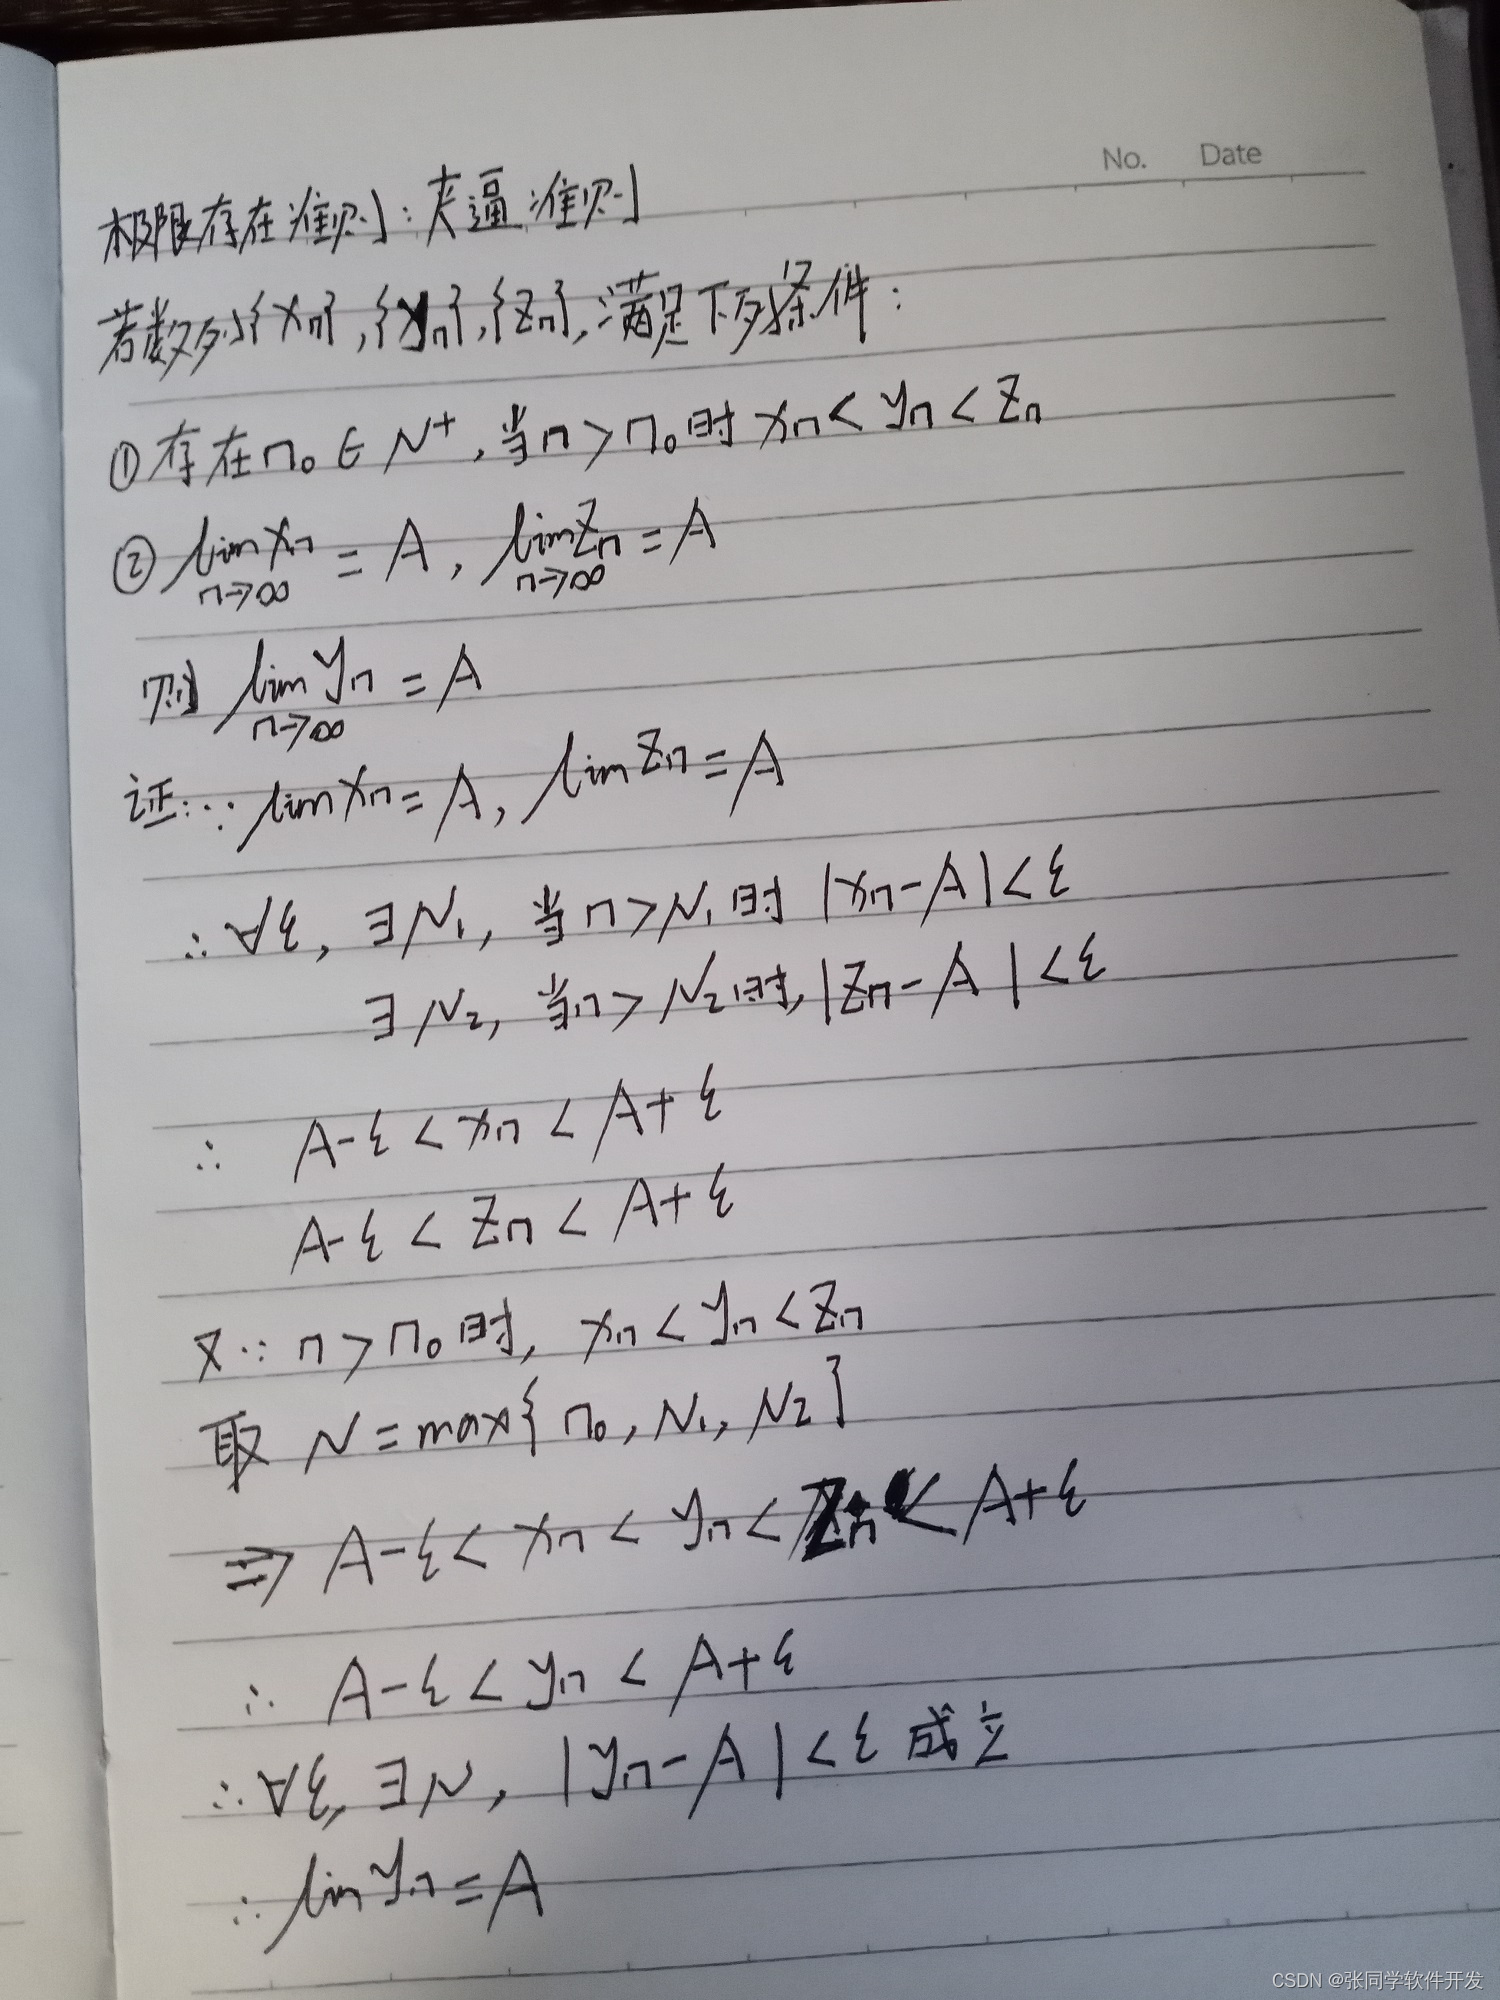 No. Date
极限存在准则:夹逼准则
若数列{xn},{yn},{zn},满足下列条件:
①存在n₀∈N⁺,当n>n₀时 xn<yn<zn
②lim xn = A, lim zn = A
n→∞ n→∞
则 lim yn = A
n→∞
证:∵lim xn = A, lim zn = A
∴∀ε, ∃N₁, 当n>N₁时 |xn-A|<ε
∃N₂, 当n>N₂时,|zn-A|<ε
∴ A-ε<xn<A+ε
A-ε<zn<A+ε
又∵n>n₀时, xn<yn<zn
取 N=max{n₀,N₁,N₂}
⇒A-ε<xn<yn<zn<A+ε
∴ A-ε<yn<A+ε
∴∀ε,∃N, |yn-A|<ε 成立
∴lim yn=A
CSDN @张同学软件开发